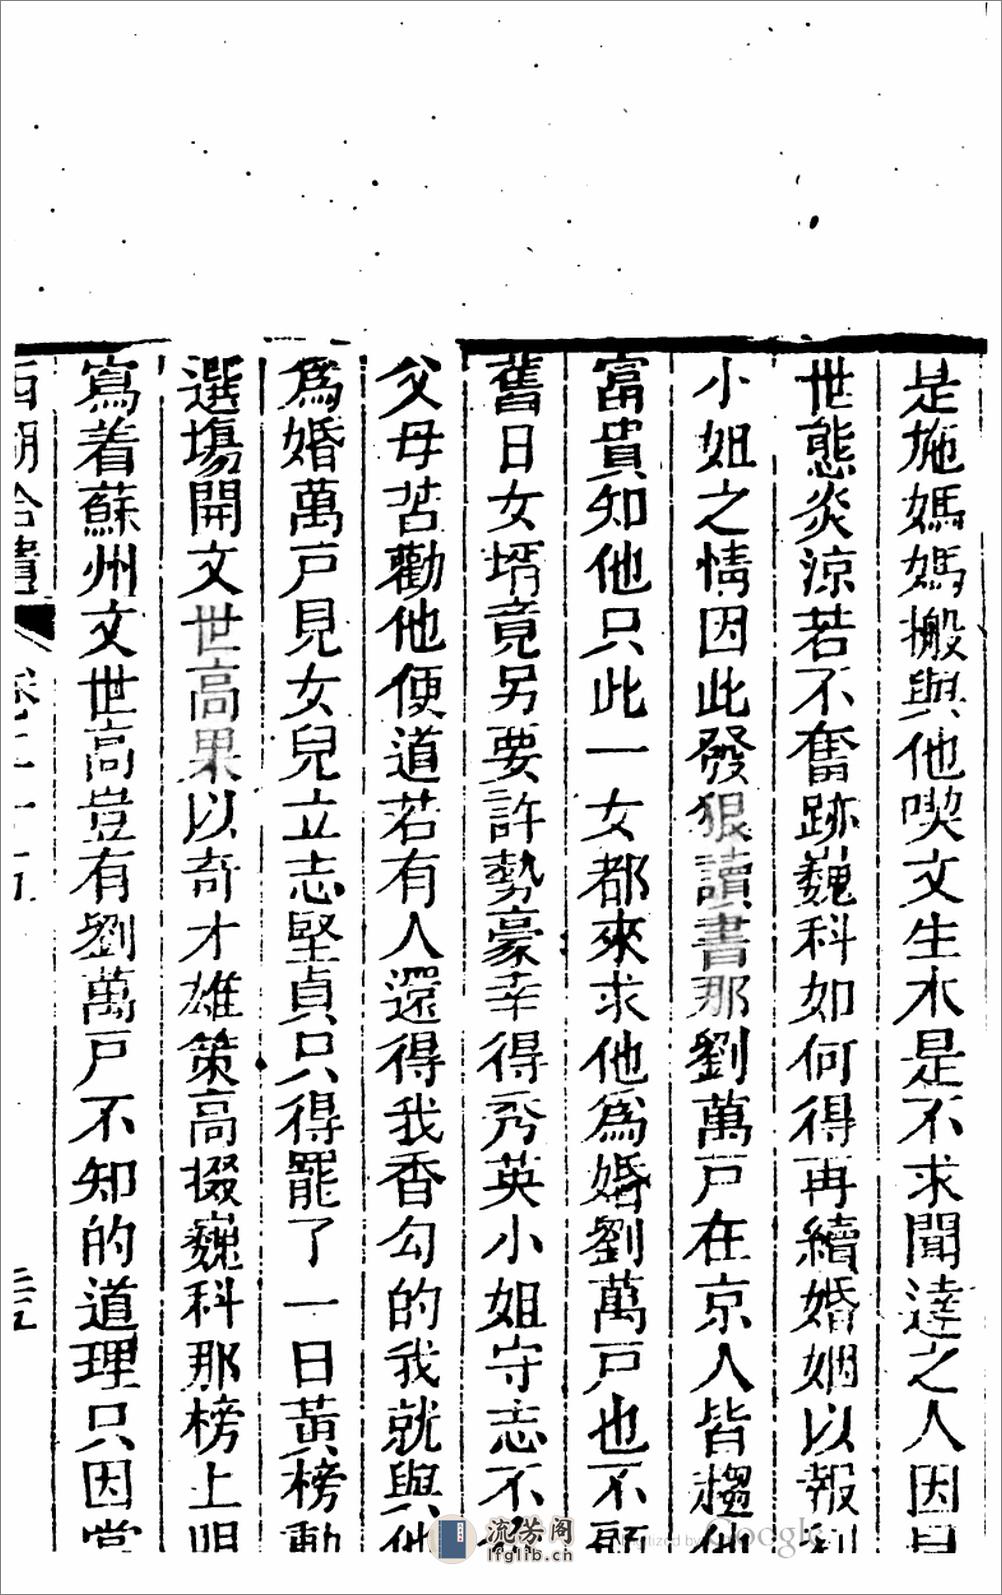 是施媽媽搬與他喫文生本是不求聞達之人因見
世態炎涼若不奮跡巍科如何得再續婚姻以報劉
小姐之情因此發狠讀書那劉萬戸在京人皆趨他
富貴知他只此一女都來求他爲婚劉萬戸也不顧
舊日女壻竟另要許勢豪幸得秀英小姐守志不
父母苦勸他便道若有人還得我香勾的我就與他
爲婚萬戸見女兒立志堅貞只得罷了一日黃榜動
選塲開文世高果以奇才雄策高掇巍科那榜上明
寫着蘇州文世高豈有劉萬戸不知的道理只因當
西湖合書 卷十五
流芳阁
lfglib.cn
Digitized by Google